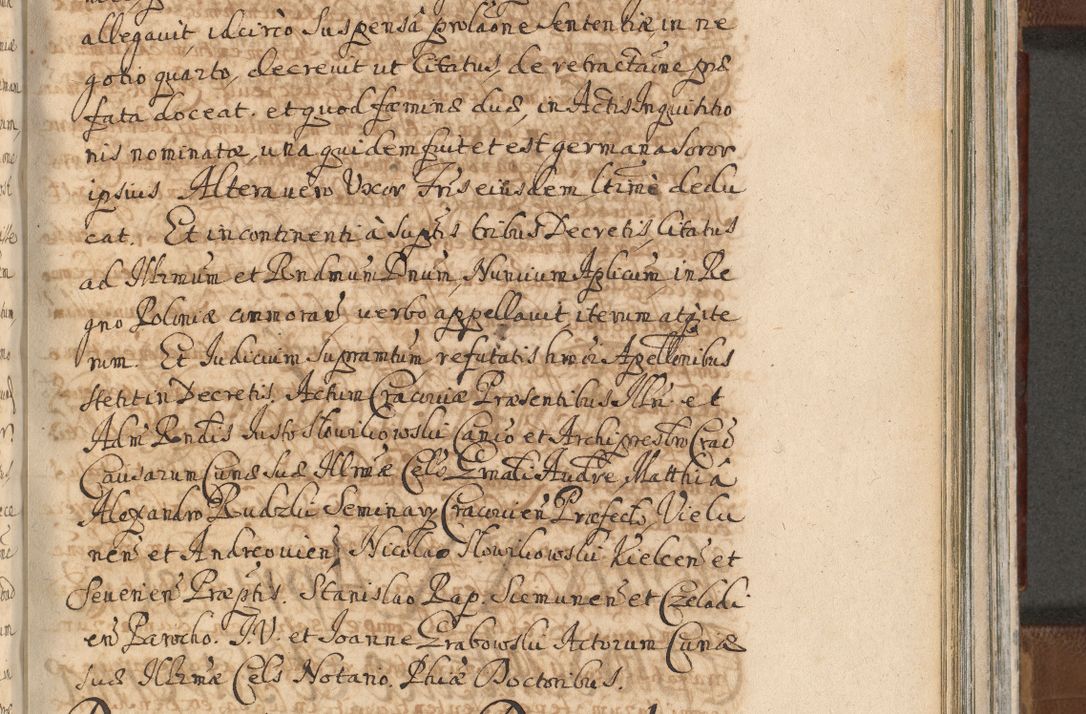 allegavit, idcirco Suspensâ prolaõne Sententiæ, in ne
gotio quarto, decrevit ut Citatus, de retractaõne præ
fata doceat. et quod fæminæ duæ, in Actis Inquisitio
nis nominatæ, una quidem fuit et est germana Soror
ipsius. Altera vero Uxor Fris eiusdem ltimè dedu
cat. Et incontinenti à Suptis tribus Decretis, Citatus
ad Illrmum et Rndmum Dnum, Nuncium Aplicum in Re
gno Poloniæ commoran, verbo appellavit iterum atq̃ ite
rum. Et Judicium Supramtum refutatis Appellonibus
stetit in Decretis. Actum Cracoviæ Præsentibus Illri et
Adm Rndis Justo Słowikowski Canco et Archipresbro Crac
Causarum Curiæ Suæ Illrmæ Cels Grnali Audre, Matthiâ
Alexandro Rudzki Seminarij Cracovien Præfecto, Vielu
nen et Andreovien, Nicolao Słowikowski Kielcen et
Sevenen Præptis. Stanislao Rap. Siemunen et Czeladi
en Parocho. J. V. et Joanne Grabowski Actorum Curiæ
suæ Illrmæ Cels Notario. Phiæ Doctoribus.